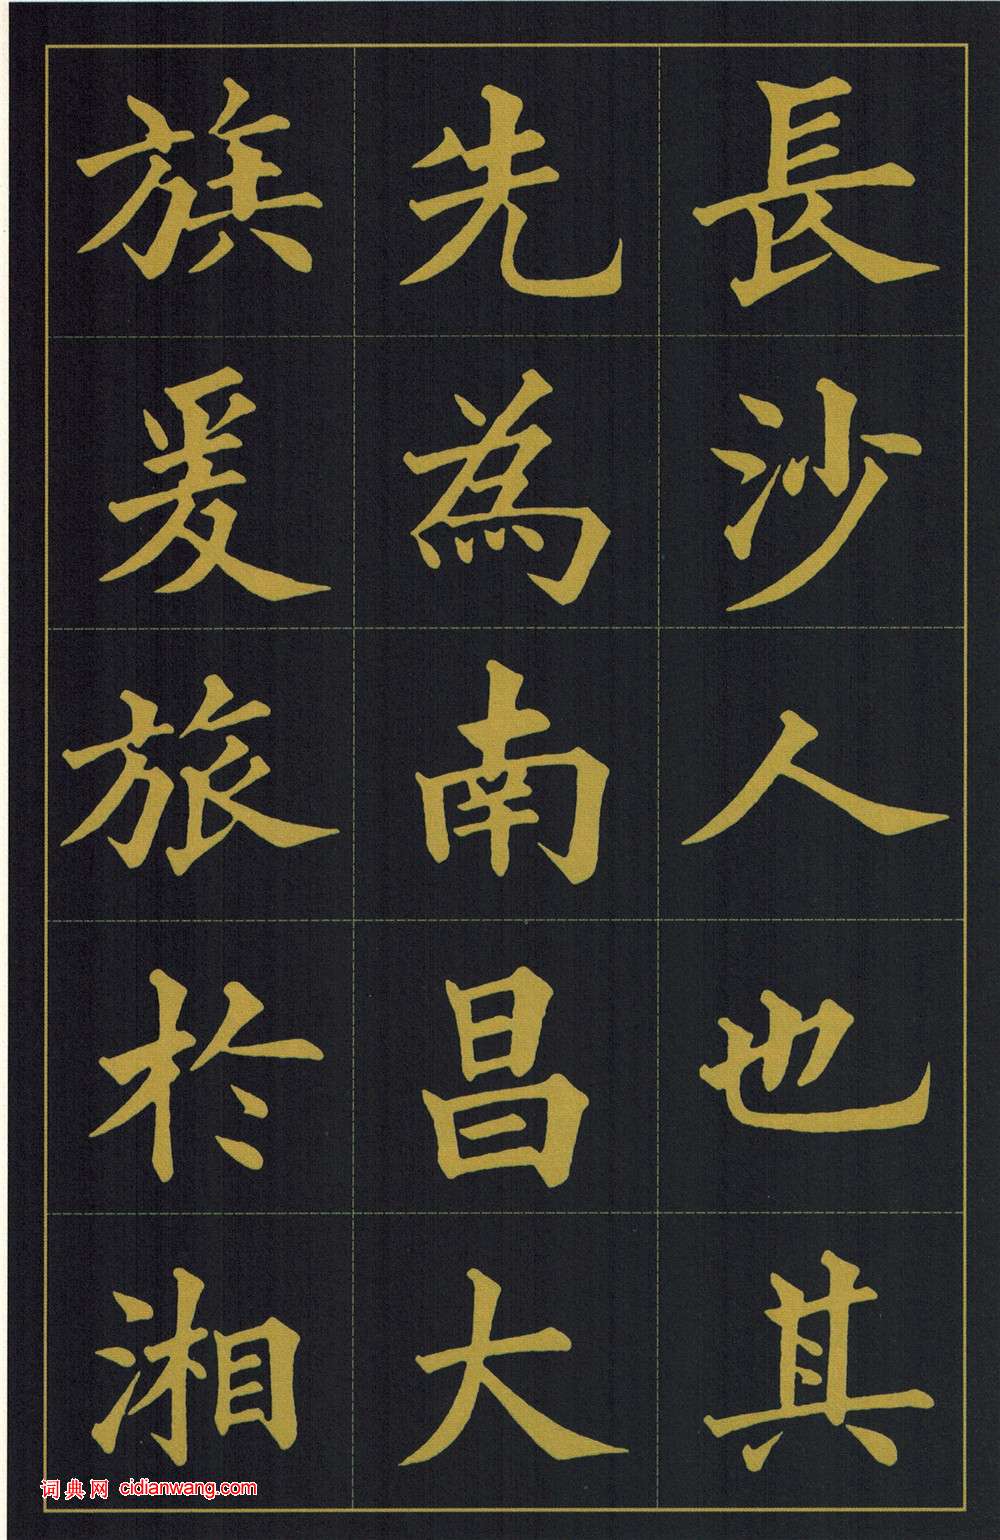 長沙人也其
先為南昌大
族爰旅於湘
词典网 cidianwang.com